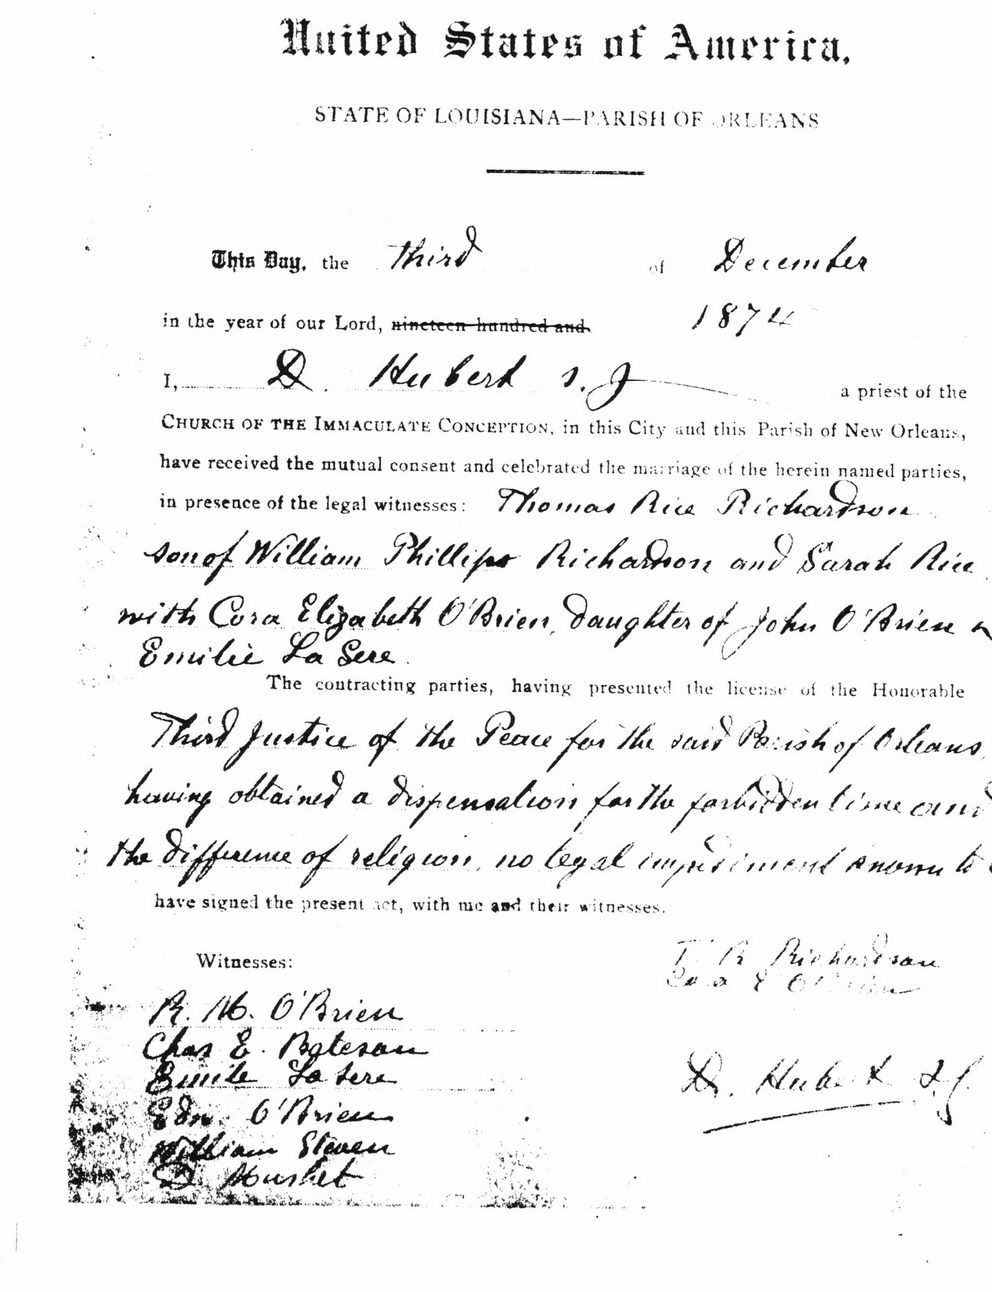 United States of America,
STATE OF LOUISIANA—PARISH OF ORLEANS
This Day, the third of December
in the year of our Lord, nineteen hundred and 1874
I, D. Hubert S.J a priest of the
CHURCH OF THE IMMACULATE CONCEPTION, in this City and this Parish of New Orleans,
have received the mutual consent and celebrated the marriage of the herein named parties,
in presence of the legal witnesses: Thomas Rice Richardson
son of William Phillips Richardson and Sarah Rice
with Cora Elizabeth O'Brien, daughter of John O'Brien
Emilie La Sere.
The contracting parties, having presented the license of the Honorable
Third Justice of the Peace for the said Parish of Orleans,
having obtained a dispensation for the forbidden time and
the difference of religion, no legal impediment known to
have signed the present act, with me and their witnesses.
Witnesses:
T. R. Richardson
Cora E O'Brien
R. M. O'Brien
Chas E. Bateson
Emile La Sere
D. Hubert S.J.
Edn. O'Brien
William Steven
D. Mushet